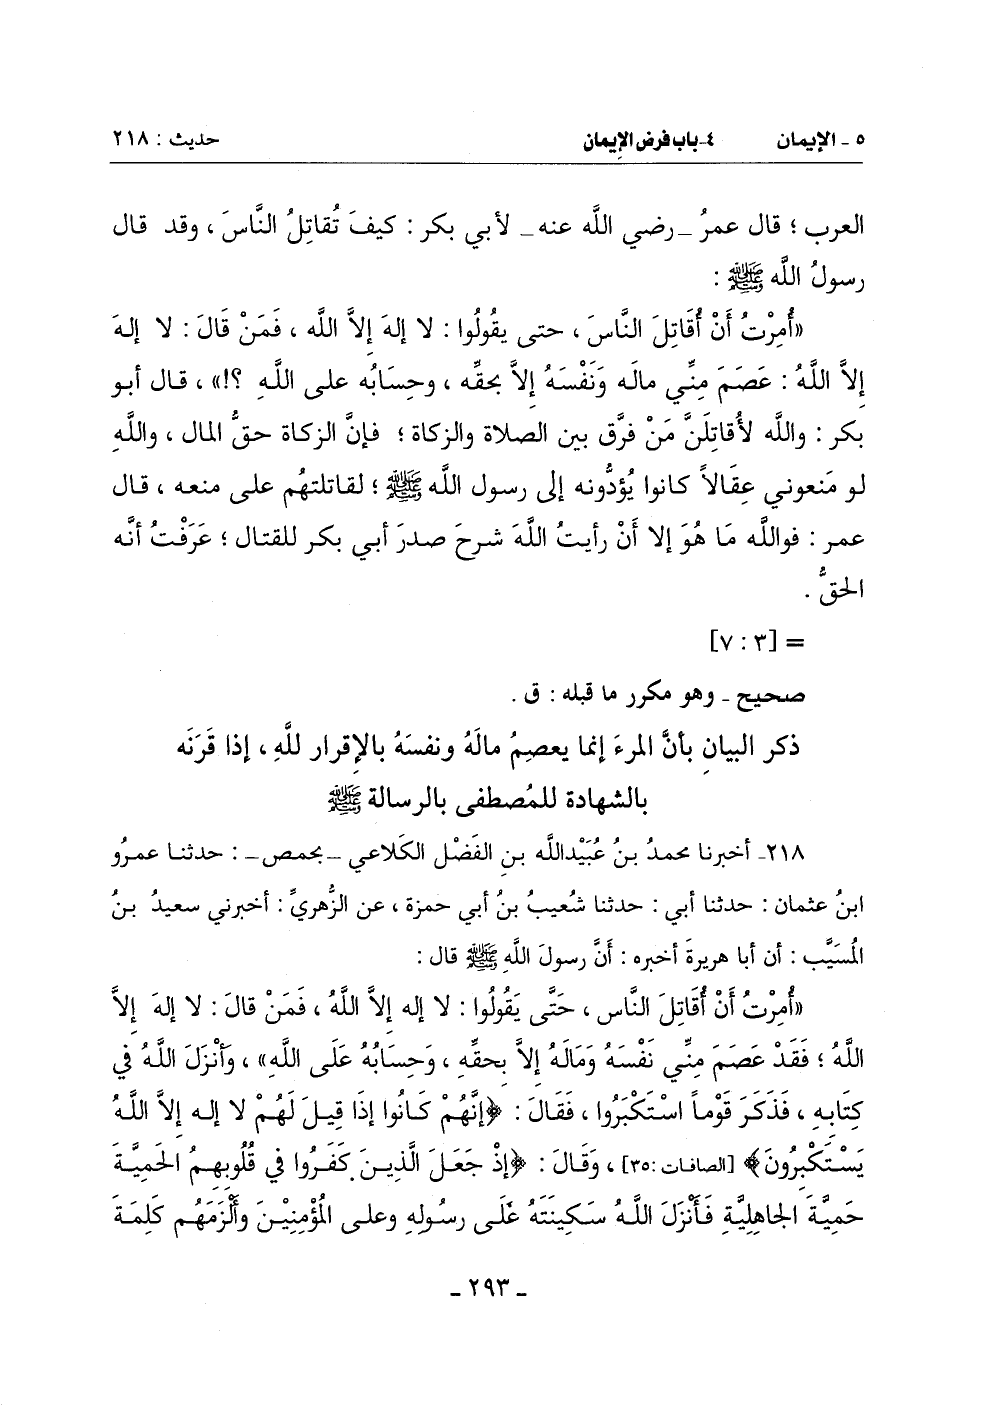 ٥ ـ الإيمان ٤ـ باب فرض الإيمان حديث : ٢١٨
العرب ؛ قال عمرُ ـ رضي اللَّه عنه ـ لأبي بكر : كيفَ تُقاتِلُ النَّاسَ ، وقد قال
رسولُ اللَّه ﷺ :
«أُمِرْتُ أَنْ أُقَاتِلَ النَّاسَ ، حتى يقُولُوا : لا إلهَ إلاَّ اللَّه ، فَمَنْ قَالَ : لا إلهَ
إلاَّ اللَّهُ : عَصَمَ مِنِّي مالَه وَنَفْسَهُ إلاَّ بحقِّه ، وحِسَابُه على اللَّهِ ؟!» ، قال أبو
بكر : واللَّه لأُقاتِلَنَّ مَنْ فرَّق بين الصلاة والزكاة ؛ فإنَّ الزكاة حقُّ المال ، واللَّهِ
لو مَنعوني عِقَالاً كانوا يُؤدُّونه إلى رسول اللَّه ﷺ ؛ لقاتلتهُم على منعه ، قال
عمر : فواللَّه مَا هُوَ إلا أَنْ رأيتُ اللَّهَ شرحَ صدرَ أبي بكر للقتال ؛ عَرَفْتُ أنَّه
الحقُّ .
= [٣ : ٧]
صحيح ـ وهو مكرر ما قبله : ق .
ذكر البيانِ بأنَّ المرءَ إنما يعصِمُ مالَهُ ونفسَهُ بالإقرار للَّهِ ، إذا قَرَنَه
بالشهادة للمُصطفى بالرسالة ﷺ
٢١٨ـ أخبرنا محمدُ بنُ عُبَيْداللَّه بنِ الفَضْل الكَلاعي ـ بحمص ـ : حدثنا عمرُو
ابنُ عثمان : حدثنا أبي : حدثنا شُعيبُ بنُ أبي حمزة ، عن الزُّهريِّ : أخبرني سعيدُ بنُ
المُسَيَّب : أن أبا هريرةَ أخبره : أَنَّ رسولَ اللَّهِ ﷺ قال :
«أُمِرْتُ أَنْ أُقَاتِلَ النَّاس ، حَتَّى يَقُولُوا : لا إله إلاَّ اللَّهُ ، فَمَنْ قالَ : لا إلهَ إلاَّ
اللَّهُ ؛ فَقَدْ عَصَمَ مِنِّي نَفْسَهُ وَمَالَهُ إلاَّ بحقِّهِ ، وَحِسَابُهُ عَلَى اللَّهِ» ، وَأَنْزَلَ اللَّهُ في
كِتَابِهِ ، فَذَكَرَ قَوْماً اسْتَكْبَرُوا ، فَقَالَ : ﴿إنَّهُمْ كَانُوا إذَا قِيلَ لَهُمْ لا إله إلاَّ اللَّهُ
يَسْتَكْبِرُونَ﴾ [الصافات :٣٥] ، وَقَالَ : ﴿إذْ جَعَلَ الَّذِينَ كَفَرُوا في قُلُوبِهِمُ الحَمِيَّةَ
حَمِيَّةَ الجَاهِلِيَّةِ فَأَنْزَلَ اللَّهُ سَكِينَتَهُ عَلَى رسُولِهِ وعلى المُؤْمِنِيْنَ وأَلْزَمَهُم كَلِمَةَ
ـ ٢٩٣ ـ